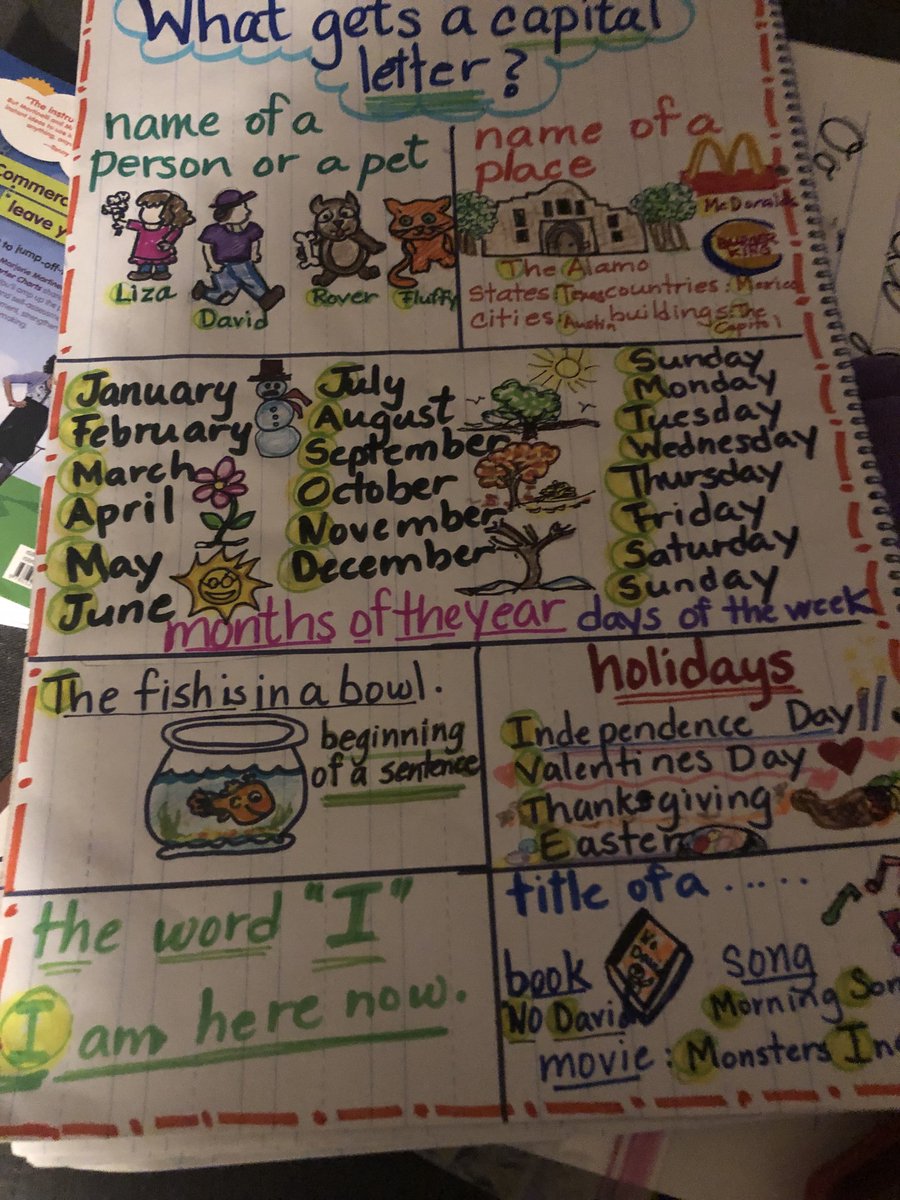 What gets a capital
letter?
name of a
person or a pet
Liza
David
Rover
Fluffy
name of a
place
McDonalds
BURGER
KING
The Alamo
States: Texas countries: Mexico
cities: Austin buildings: The
Capitol
January
February
March
April
May
June
July
August
September
October
November
December
months of the year
Sunday
Monday
Tuesday
Wednesday
Thursday
Friday
Saturday
Sunday
days of the week
The fish is in a bowl.
beginning
of a sentence
holidays
Independence Day
Valentines Day
Thanksgiving
Easter
the word "I"
I am here now.
title of a .....
book
No David
song
Morning Son
movie: Monsters Inc
"The instru
Commerc
"leave y
to jump-off-
Marjorie Martine